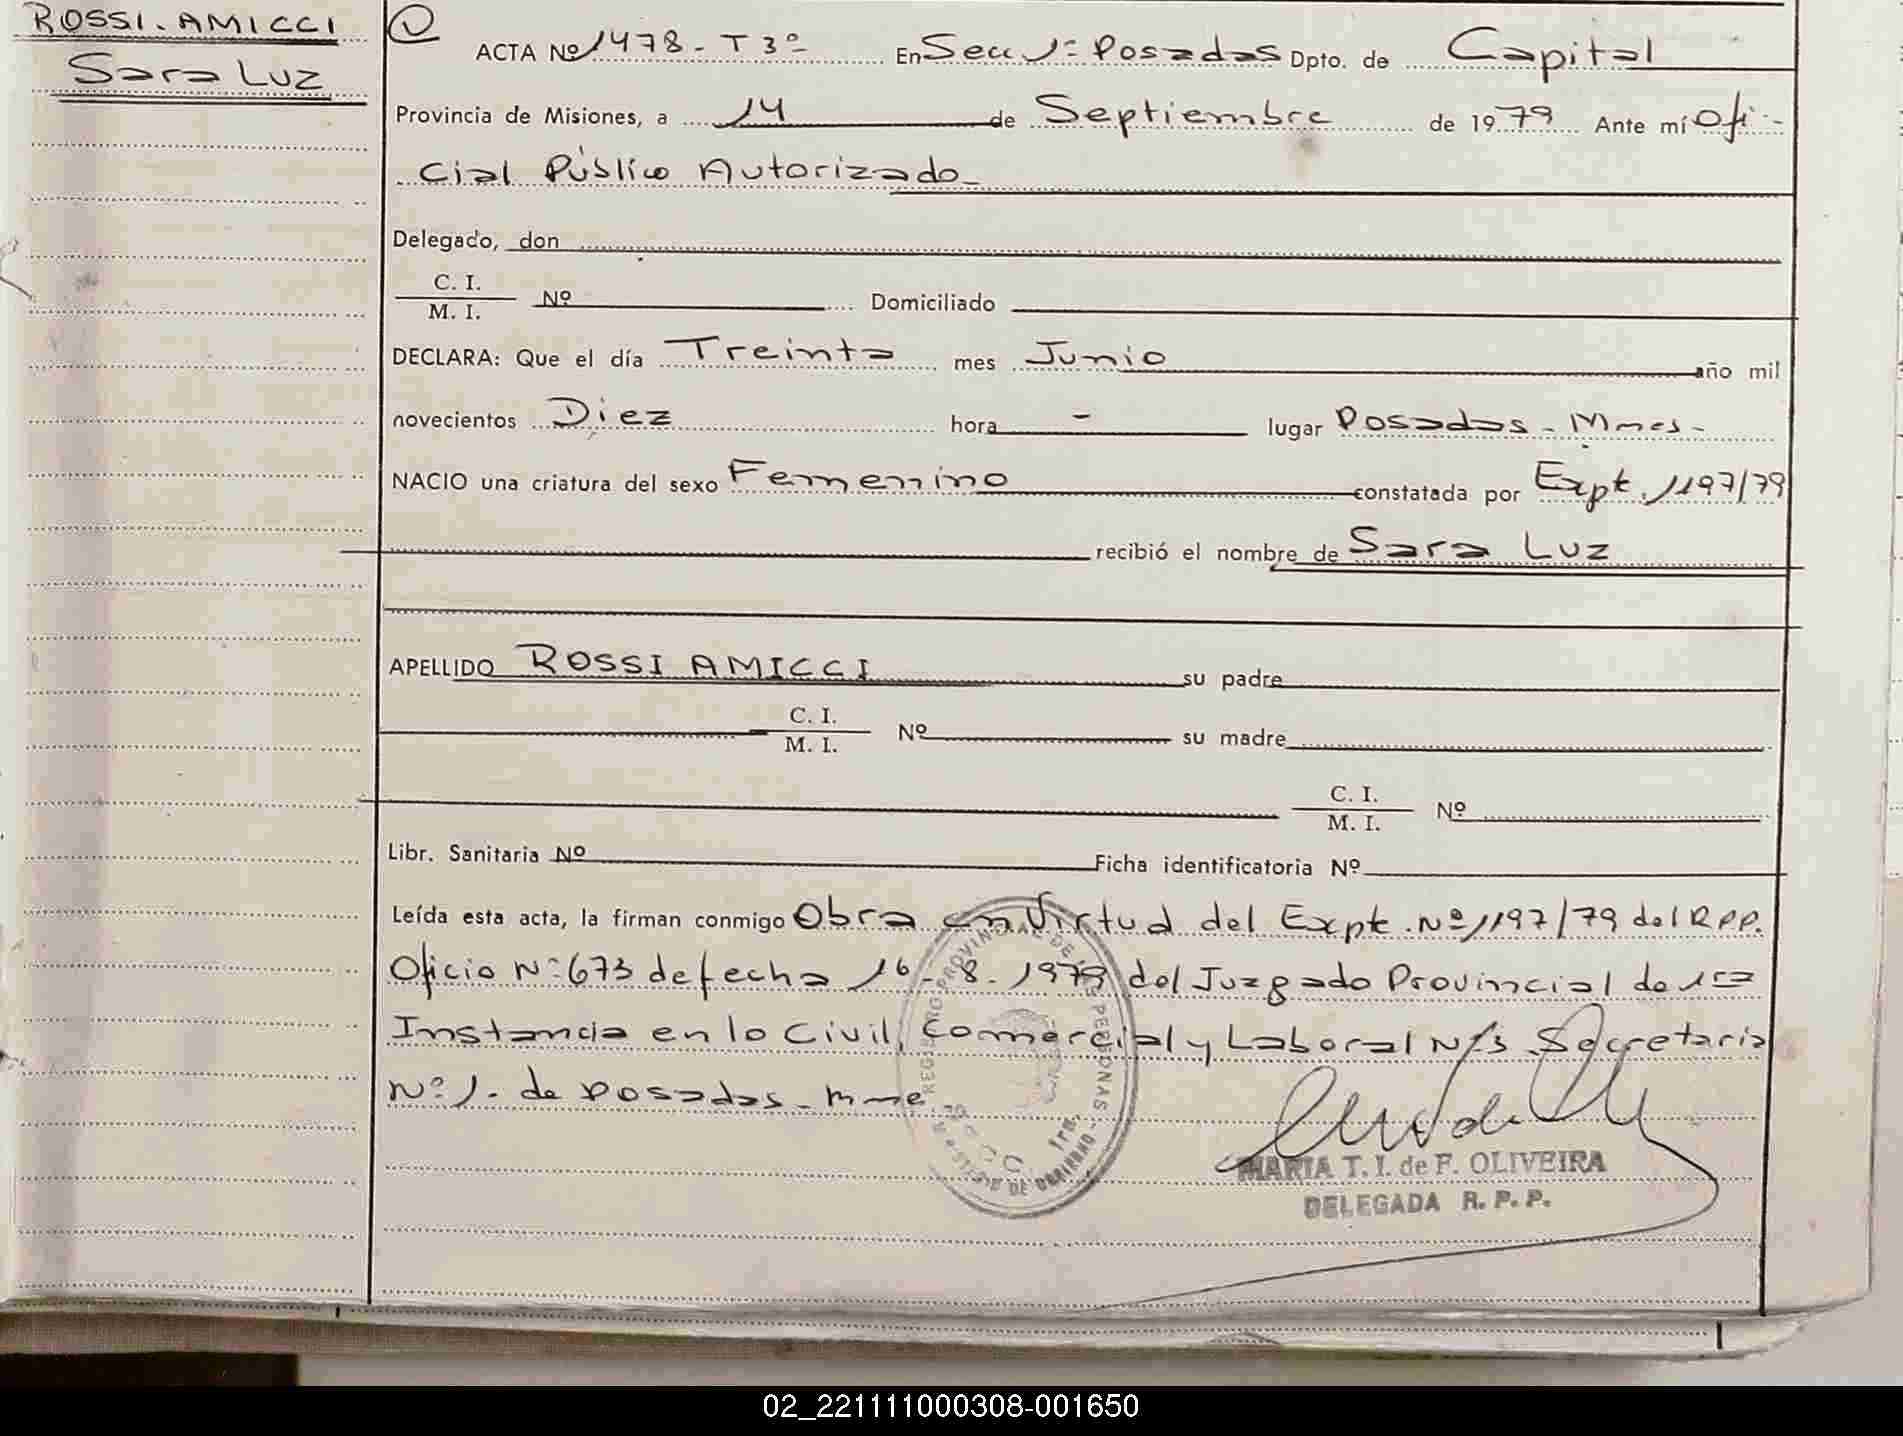 ROSSI-AMICCI
Sara Luz
ACTA Nº 1478-T3º- En Secc 1ª Posadas Dpto. de Capital
Provincia de Misiones, a 14 de Septiembre de 1979 Ante mí Ofi-
cial Público Autorizado-
Delegado, don
C. I.
M. I.
Nº Domiciliado
DECLARA: Que el día Treinta mes Junio año mil
novecientos Diez hora - lugar Posadas - Mnes-
NACIO una criatura del sexo Femenino constatada por Expt. 1197/79
recibió el nombre de Sara Luz
APELLIDO ROSSI AMICCI su padre
C. I.
M. I.
Nº su madre
C. I.
M. I.
Nº
Libr. Sanitaria Nº Ficha identificatoria Nº
Leída esta acta, la firman conmigo Obra en Virtud del Expt. Nº 1197/79 del R.P.P.
Oficio Nº 673 de fecha 16-8-1979 del Juzgado Provincial de 1ra
Instancia en lo Civil, Comercial y Laboral Nº3 Secretaria
Nº 1- de Posadas - Mnes
REGISTRO PROVINCIAL DE LAS PERSONAS
MARIA T. I. de F. OLIVEIRA
DELEGADA R. P. P.
02_221111000308-001650